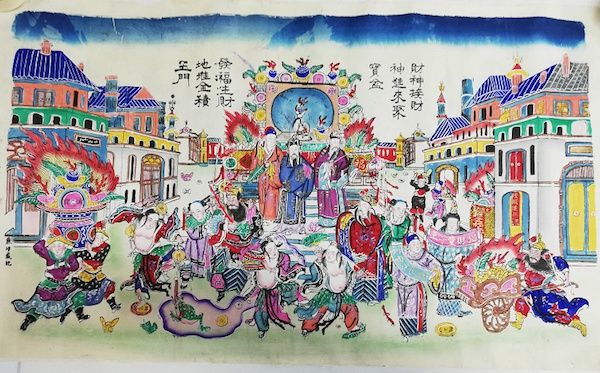 財神接財
神進來聚
寶盆
發福生財
地堆金積
玉門